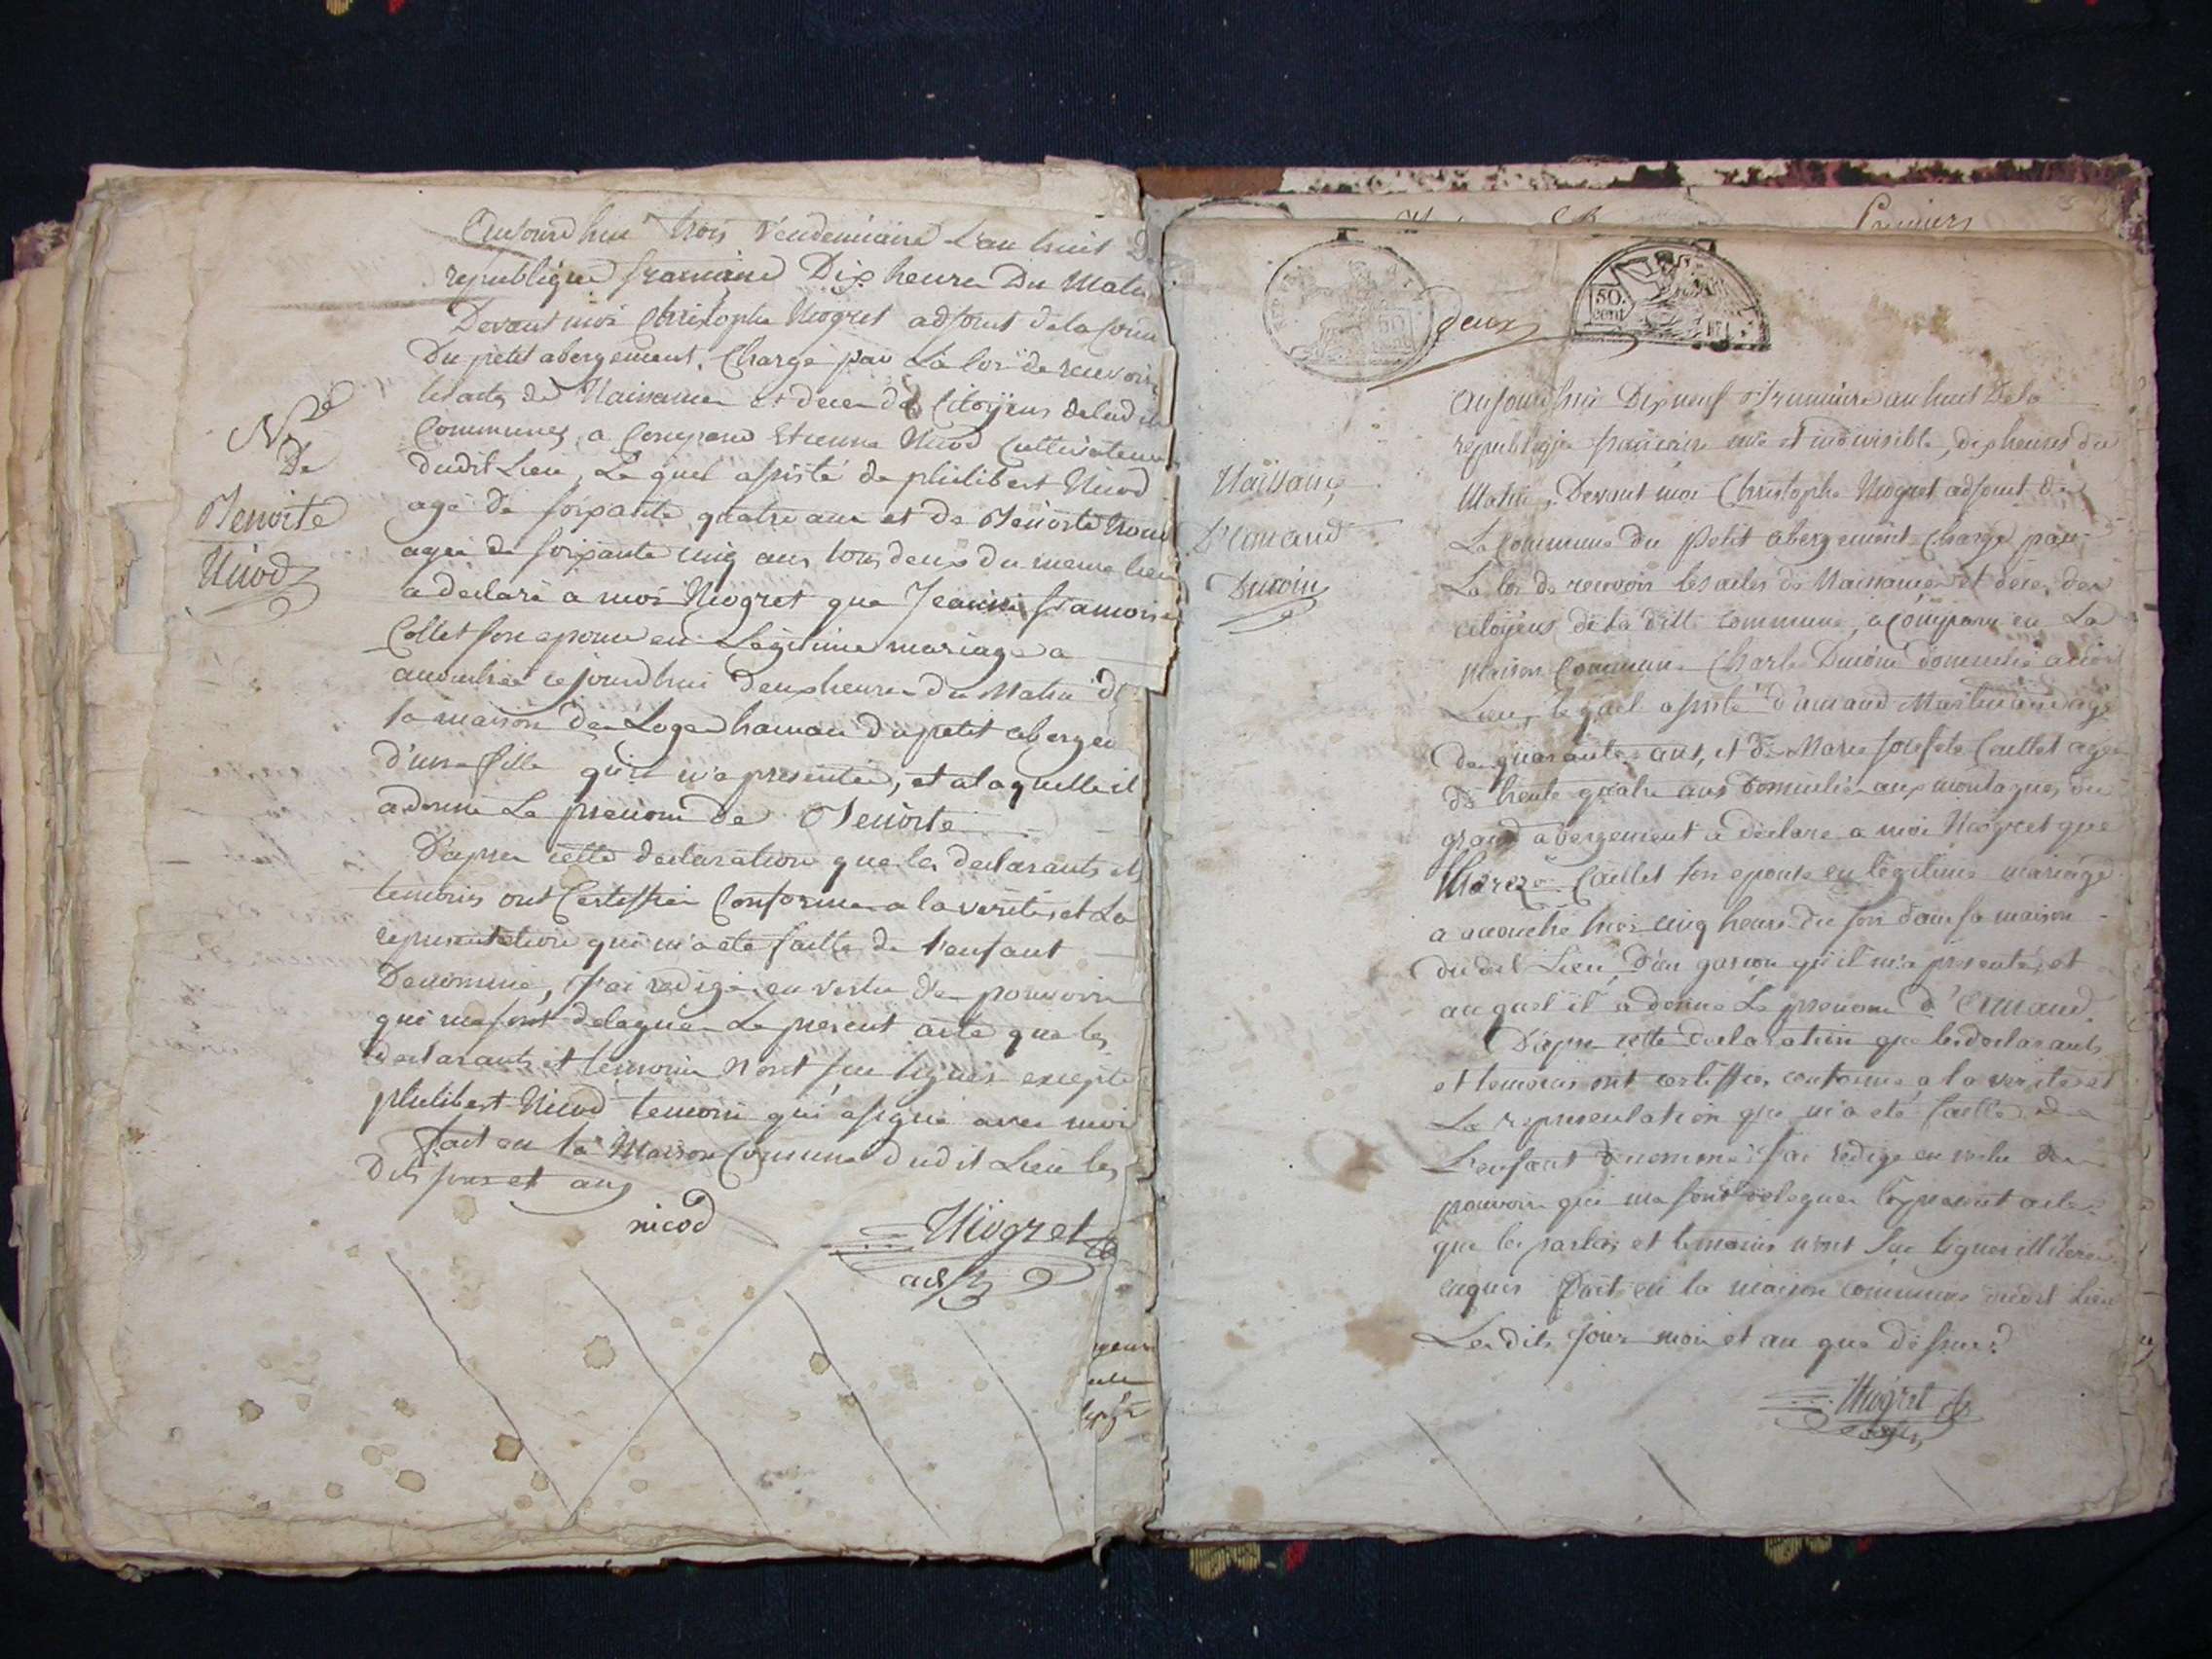 Aujourdhui trois Vendemiaire l'an huit De
republique francaine Dix heure Du Matin
Devant moi Christophe Niogret adjoint de la Com
Du petit abergement, Chargé par La loi de recevoir
les actes de Naissance et deces des Citoÿens de ladite
Communes, a Comparu Etienne Nicod Cultivateur
dudit Lieu, Le quel assisté de philibert Nicod
agé de soixante quatre ans et de Benoite
agée de soixante cinq ans tous deux du meme lieu
a declaré a moi Niogret que Jeanne francoise
Collet son epouse en Legitime mariage a
accouchée ce jourdhui deux heures du Matin d
sa maison de Loge hameau du petit aberge
d'une fille qu'il m'a presentée, et a laquelle il
a donné Le prenom de Benoite
D'apres cette declaration que les declarants et
temoins ont Certiffiée Conforme a la verité, et La
representation qui m'a eté faitte de l'enfant
Denommé, j'ai redigé en vertu des pouvoirs
qui me sont delegués Le present acte que les
declarants et temoins n'ont sçu signer excepté
philibert Nicod temoin qui a signé avec moi
fait en la Maison Commune dudit Lieu les
Dits jour et an
nicod
Niogret
adjt
Nce
De
Benoite
Nicod
deux
50.
cent
Naissance
D'Amand
Ducoin
Aujourdhui Dix neuf Brumaire an huit De la
republique francaise une et indivisible, dix heures du
Matin, Devant moi Christophe Niogret adjoint de
La Commune du Petit abergement Chargé par
La loi de recevoir les actes de Naissance et deces des
citoÿens de la ditte Commune, a Comparu en La
Maison Commune Charle Ducoin domicilié audit
Lieu, le quel assisté d'amand Martinand agé
de quarante ans, et de Marie Josefete Caillet agée
de trente quatre ans Domiciliés aux montagnes du
grand abergement a declaré a moi Niogret que
Caillet son epouse en legitime mariage
a accouché hier cinq heures du soir dans sa maison
dudit Lieu, D'un garcon qu'il m'a presenté, et
au quel il a donné Le prenom d'Amand.
D'apres cette declaration que les declarants
et temoins ont certiffiée conforme a la verité et
La representation qui m'a eté faitte de
L'enfant denommé j'ai redigé en vertu des
pouvoirs qui me sont delegués le present acte
que les parties et temoins n'ont sçu signer
enquis fait en la maison commune dudit Lieu
Les dits jour mois et an que dessus
Niogret
adjt